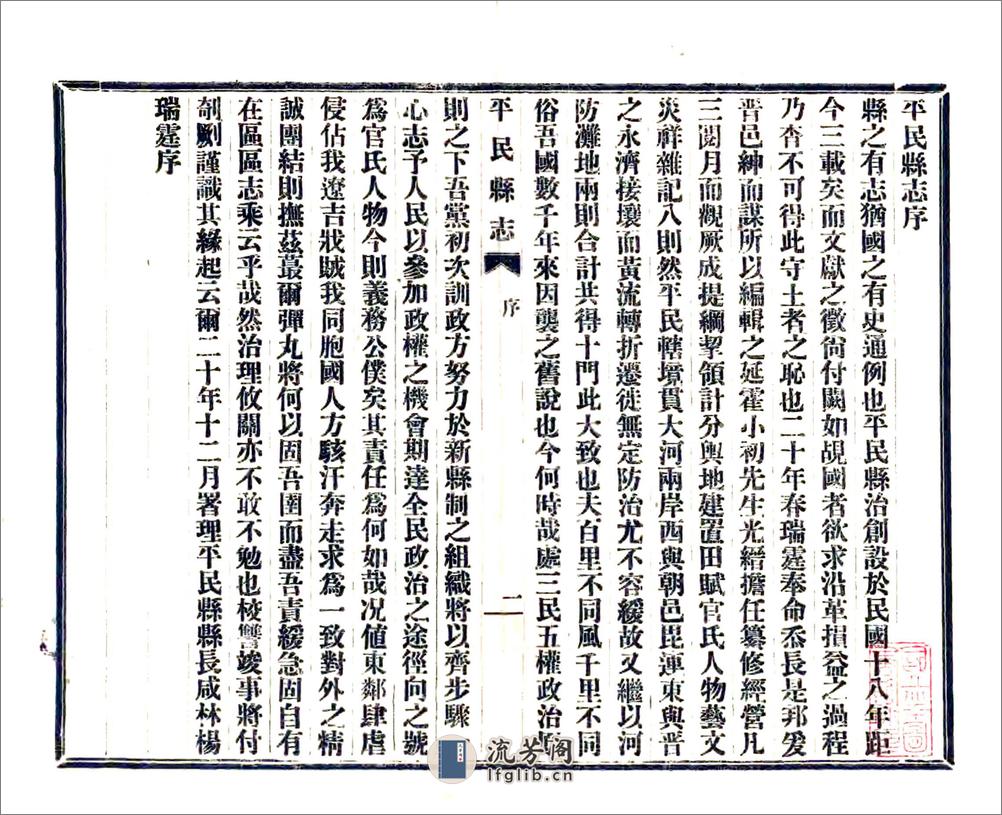 平民縣志序
縣之有志猶國之有史通例也平民縣治創設於民國十八年距
今三載矣而文獻之徵尙付闕如覘國者欲求沿革損益之過程
乃杳不可得此守土者之恥也二十年春瑞霆奉命忝長是邦爰
晋邑紳而謀所以編輯之延霍小初先生光縉擔任纂修經營凡
三閱月而觀厥成提綱挈領計分輿地建置田賦官氏人物藝文
災祥雜記八則然平民轄境貫大河兩岸西與朝邑毘連東與晋
之永濟接壤而黃流轉折遷徙無定防治尤不容緩故又繼以河
防灘地兩則合計共得十門此大致也夫百里不同風千里不同
俗吾國數千年來因襲之舊說也今何時哉處三民五權政治
平民縣志
序
二
則之下吾黨初次訓政方努力於新縣制之組織將以齊步驟
心志予人民以參加政權之機會期達全民政治之途徑向之號
爲官氏人物今則義務公僕矣其責任爲何如哉况値東鄰肆虐
侵佔我遼吉戕賊我同胞國人方駭汗奔走求爲一致對外之精
誠團結則撫茲蕞爾彈丸將何以固吾圉而盡吾責緩急固自有
在區區志乘云乎哉然治理攸關亦不敢不勉也校讐竣事將付
剞劂謹識其緣起云爾二十年十二月署理平民縣縣長咸林楊
瑞霆序
流芳阁
lfglib.cn